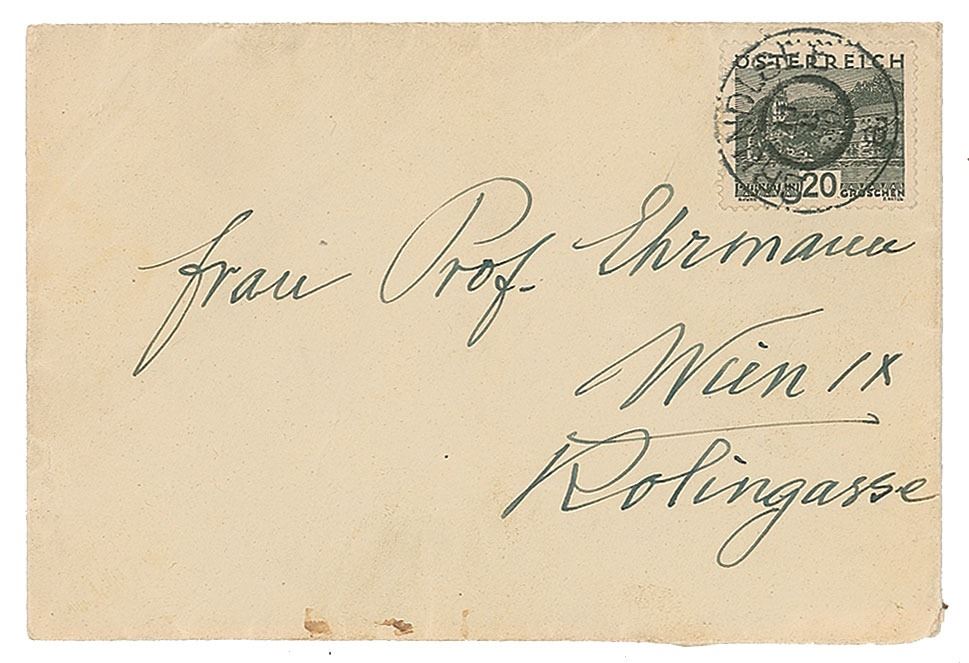 ÖSTERREICH
20
GROSCHEN
Frau Prof. Ehrmann
Wien IX
Kolingasse